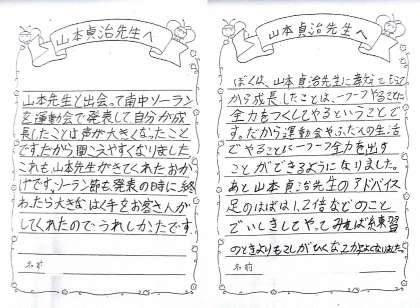 山本貞治先生へ
山本先生と出会って南中ソーラン
を運動会で発表して自分が成
長したことは声が大きくなったこと
ですだから聞こえやすくなりました
これも山本先生がきてくれたおか
げです。ソーラン節を発表の時に終
わったら大きなはく手をお客さんが
してくれたので、うれしかったです
名前
山本貞治先生へ
ぼくは、山本貞治先生に
から成長したことは、一つ一つやることに
全力をつくしてやるということで
す。だから運動会やふだんの生活
でやることに一つ一つ全力を出す
ことができるようになりました。
あと山本貞治先生のアドバイス
足のはばは1.2倍などのこと
でいしきしてやってみれば練習
のときよりもこしがひくくなりました。
名前